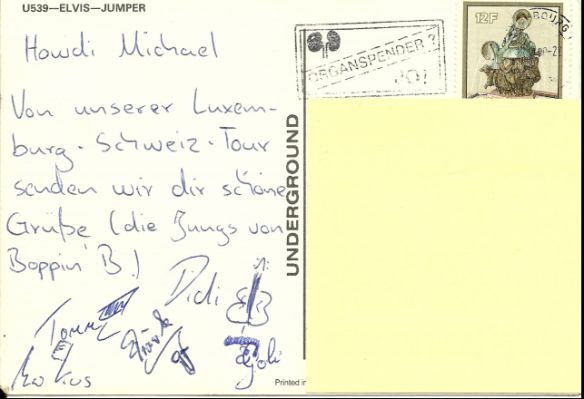 U539—ELVIS—JUMPER
Howdi Michael
Von unserer Luxem-
burg-Schweiz-Tour
senden wir dir schöne
Grüße (die Jungs von
Boppin' B.)
Didi
Tommy
Markus
ORGANSPENDER?
JO!
12F
BOURG
UNDERGROUND
Printed in